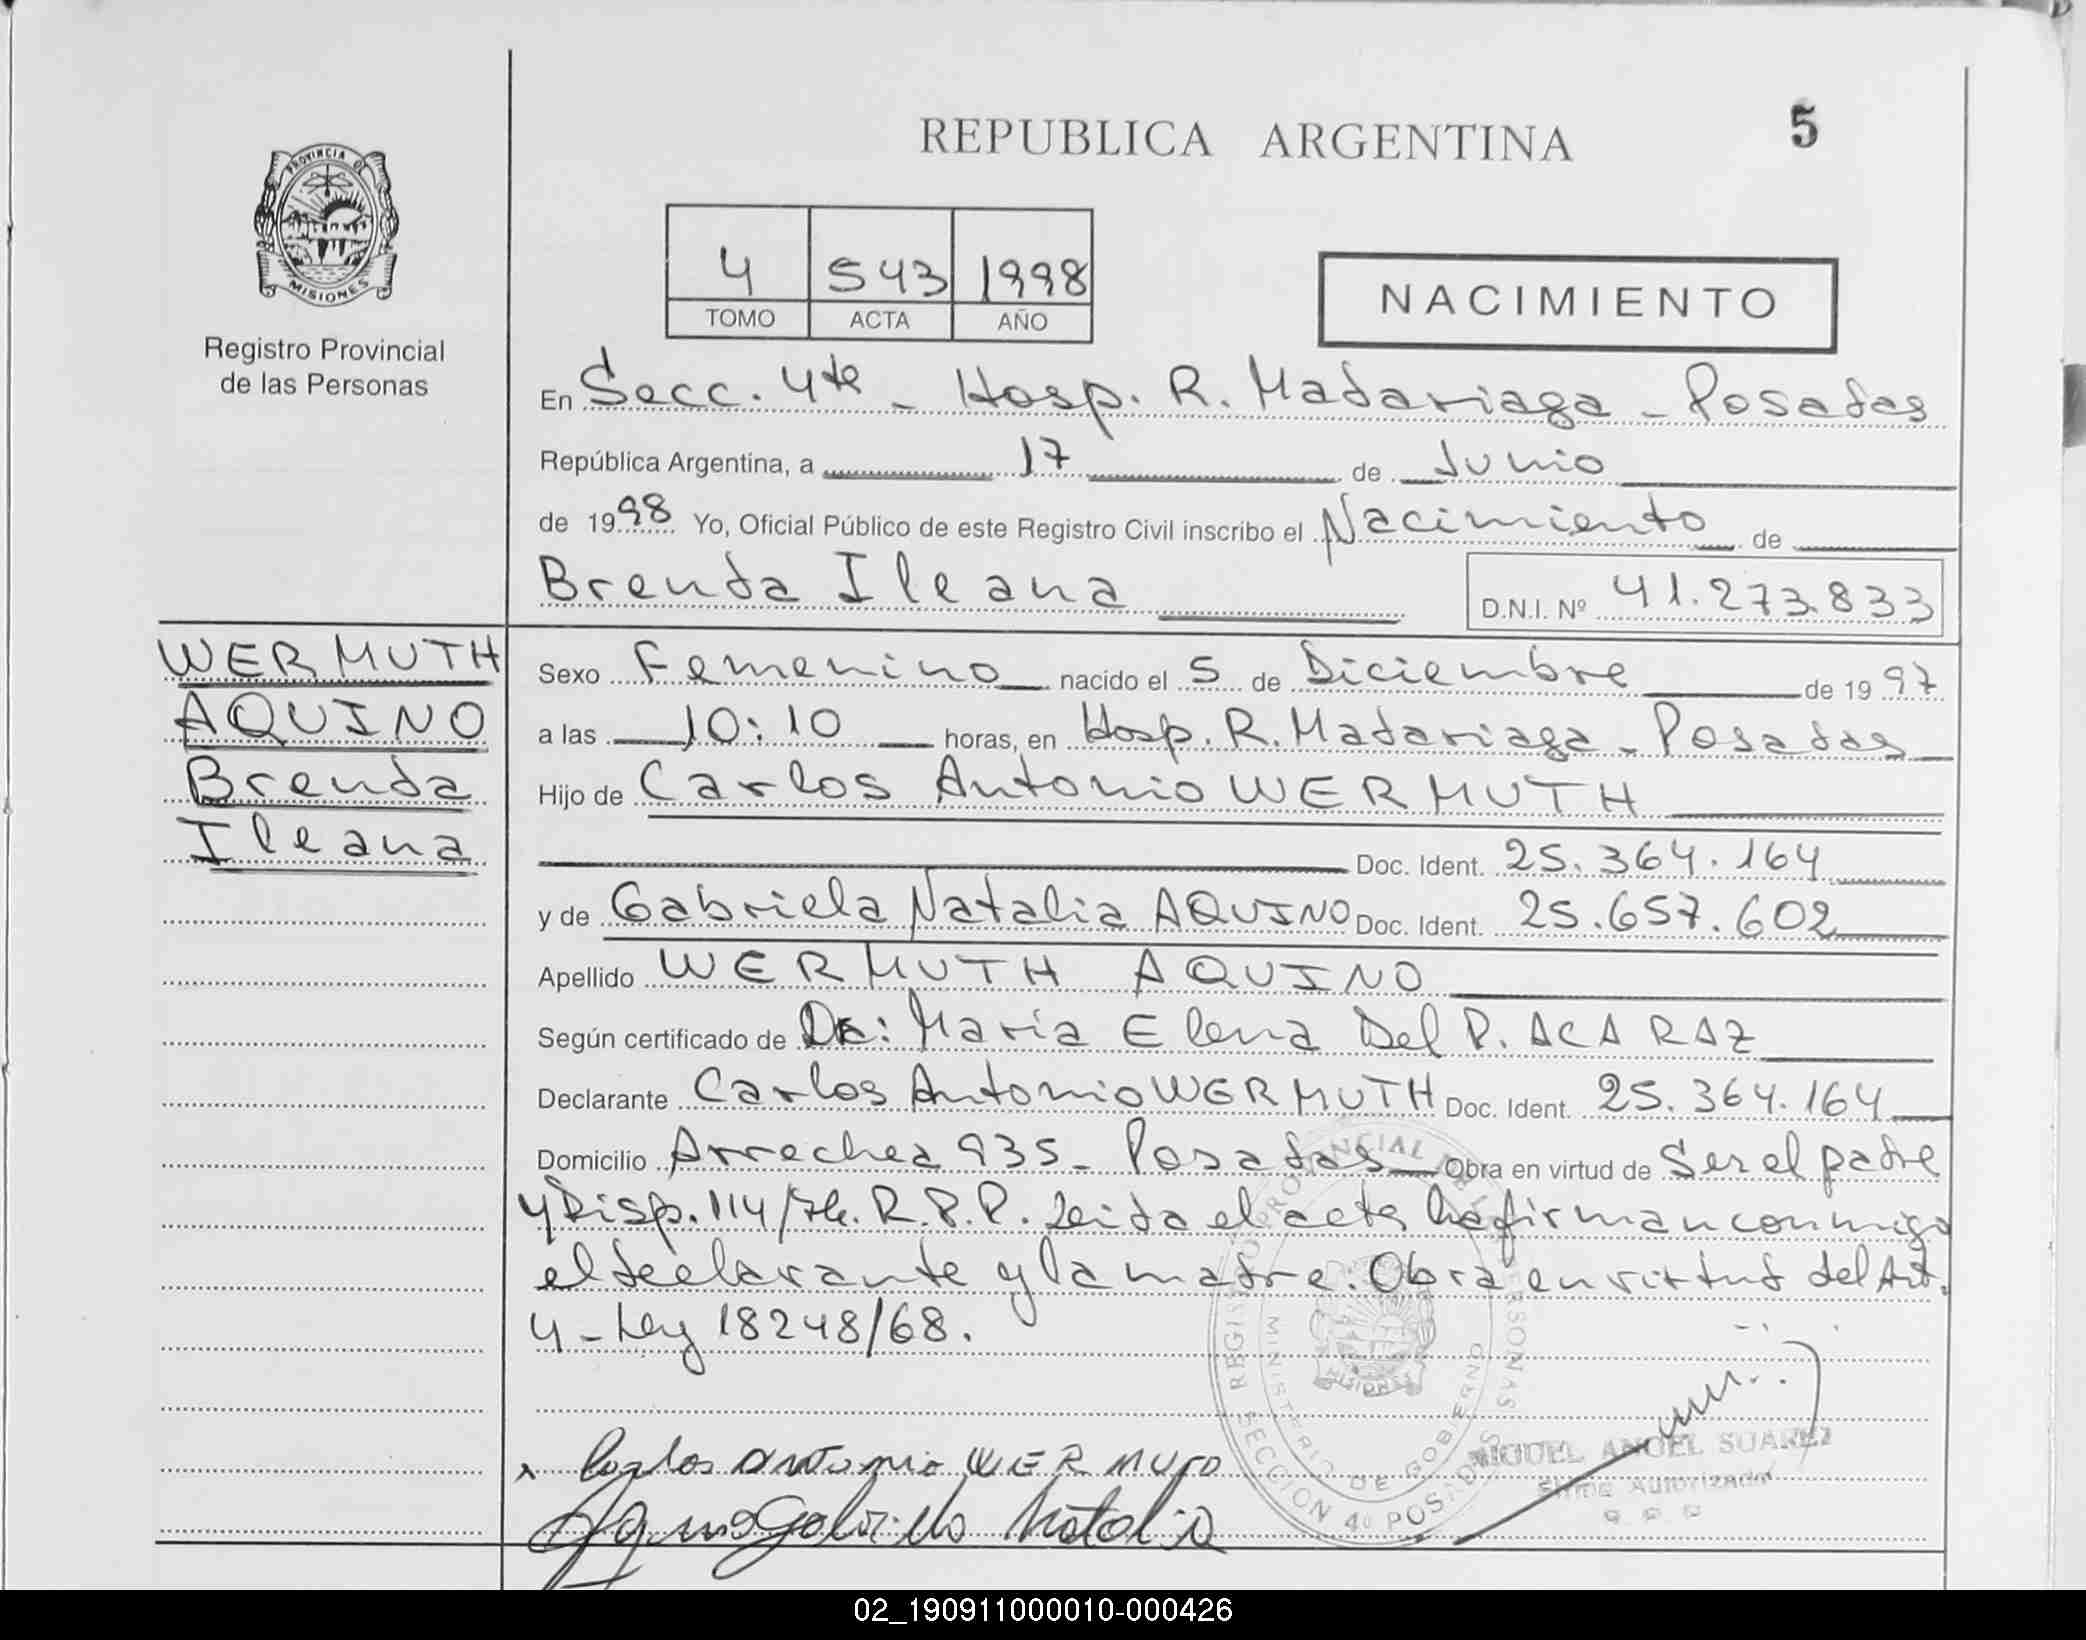 REPUBLICA ARGENTINA
5
PROVINCIA DE
MISIONES
Registro Provincial
de las Personas
4 543 1998
TOMO ACTA AÑO
NACIMIENTO
En Secc. 4ta - Hosp. R. Madariaga - Posadas
República Argentina, a 17 de Junio
de 1998 Yo, Oficial Público de este Registro Civil inscribo el Nacimiento de
Brenda Ileana
D.N.I. Nº 41.273.833
WERMUTH
AQUINO
Brenda
Ileana
Sexo Femenino nacido el 5 de Diciembre de 1997
a las 10:10 horas, en Hosp. R. Madariaga - Posadas
Hijo de Carlos Antonio WERMUTH
Doc. Ident. 25.364.164
y de Gabriela Natalia AQUINO Doc. Ident. 25.657.602
Apellido WERMUTH AQUINO
Según certificado de Dr: María Elena Del P. ACARAZ
Declarante Carlos Antonio WERMUTH Doc. Ident. 25.364.164
Domicilio Arrechea 935 - Posadas Obra en virtud de Ser el padre
y Disp. 114/76. R.P.P. Leida el acta la firman conmigo
el declarante y la madre. Obra en virtud del Art.
4 - Ley 18248/68.
REGISTRO PROVINCIAL DE LAS PERSONAS
MINISTERIO DE GOBIERNO
MISIONES
SECCION 4º POSADAS
Carlos Antonio WERMUTO
Aquino Gabriela Natalia
MIGUEL ANGEL SUAREZ
Firma Autorizada
02_190911000010-000426